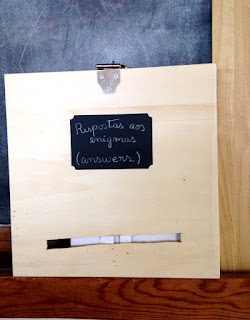 Respostas aos
enigmas
(answers)